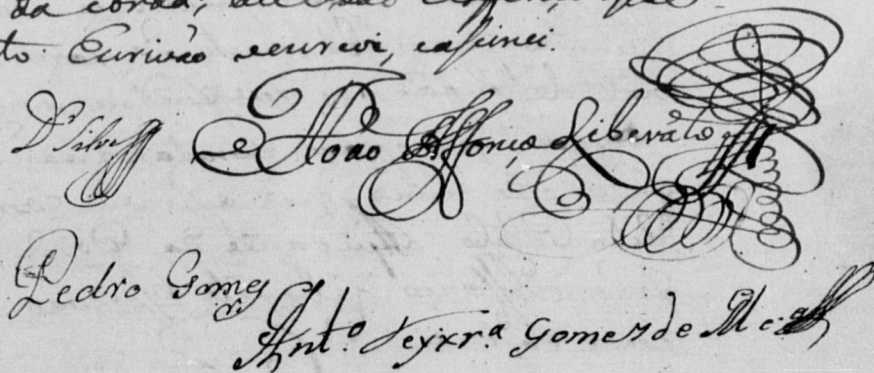 da
to Escrivão o escrevi, e asinei.
Dr Silva João Affonço Liberáto
Pedro Gomes
Ant.º Teyxr.ª Gomes de